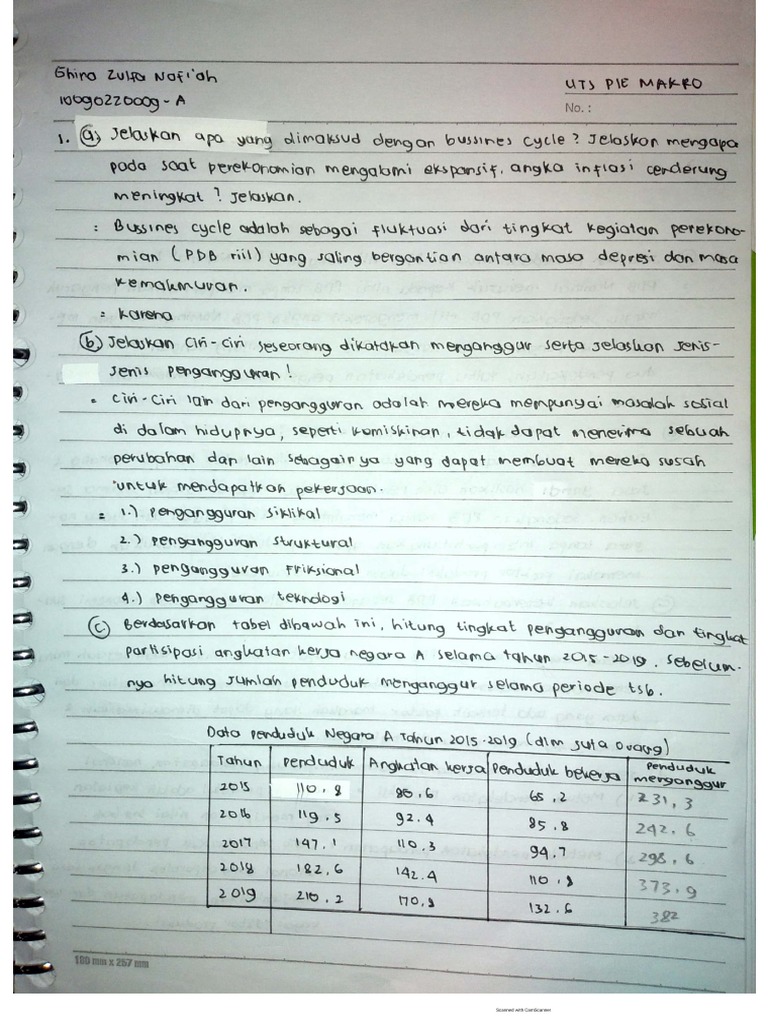 Ghina Zulfa Nafi'ah
10090220009-A
UTS PIE MAKRO
No. :
1. (a) Jelaskan apa yang dimaksud dengan bussines cycle? Jelaskan mengapa
pada saat perekonomian mengalami ekspansif, angka inflasi cenderung
meningkat? Jelaskan.
: Bussines cycle adalah sebagai fluktuasi dari tingkat kegiatan perekono-
mian (PDB riil) yang saling bergantian antara masa depresi dan masa
kemakmuran.
= Karena
(b) Jelaskan ciri-ciri seseorang dikatakan menganggur serta jelaskan jenis-
jenis pengangguran!
= Ciri-ciri lain dari pengangguran adalah mereka mempunyai masalah sosial
di dalam hidupnya, seperti kemiskinan, tidak dapat menerima sebuah
perubahan dan lain sebagainya yang dapat membuat mereka susah
untuk mendapatkan pekerjaan.
= 1.) pengangguran siklikal
2.) pengangguran struktural
3.) pengangguran friksional
4.) pengangguran teknologi
(c) Berdasarkan tabel dibawah ini, hitung tingkat pengangguran dan tingkat
partisipasi angkatan kerja negara A selama tahun 2015-2019. Sebelum-
nya hitung jumlah penduduk menganggur selama periode tsb.
Data penduduk Negara A Tahun 2015-2019 (dlm juta orang)
Tahun penduduk Angkatan kerja penduduk bekerja penduduk menganggur
2015 110.8 86.6 65,2 231,3
2016 119.5 92.4 85.8 242,6
2017 147.1 110.3 94.7 298,6
2018 182.6 142.4 110.8 373,9
2019 210.2 170.8 132.6 382
180 mm x 257 mm
Scanned with CamScanner